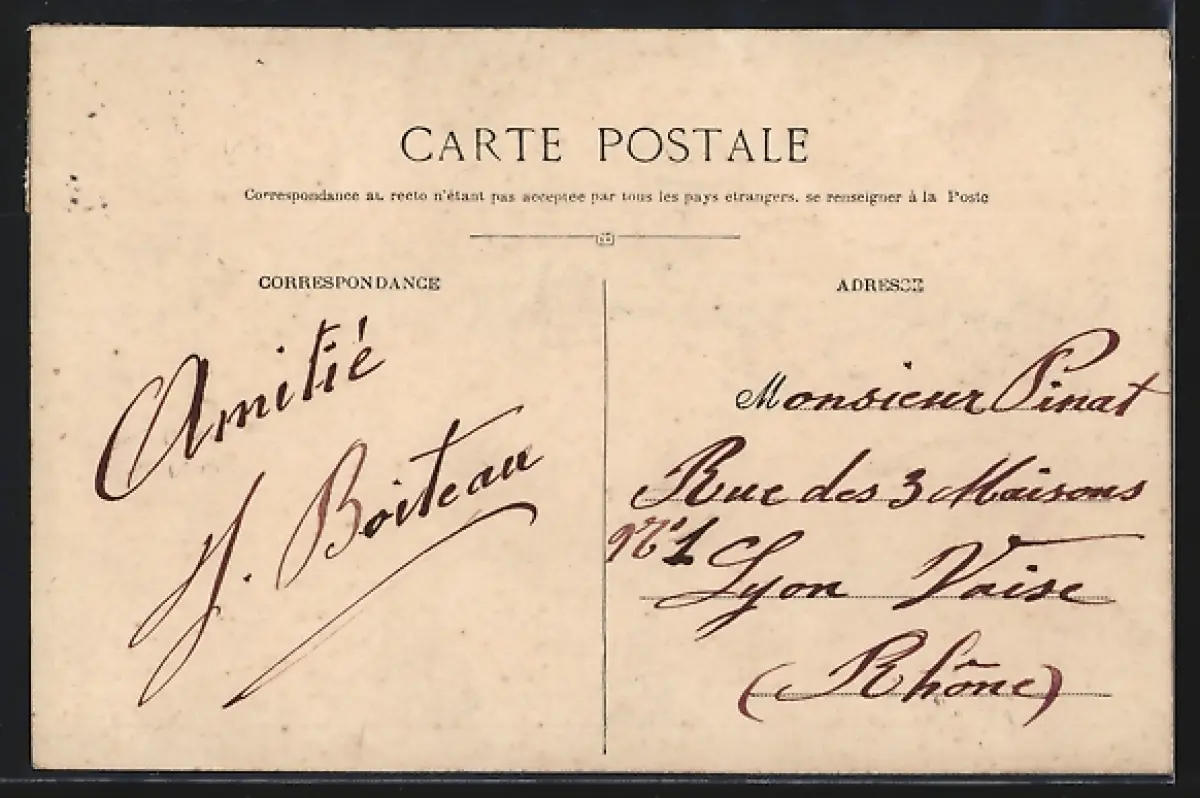 CARTE POSTALE
Correspondance au recto n'étant pas acceptée par tous les pays etrangers, se renseigner à la Poste
CORRESPONDANCE
Amitié
J. Boiteau
ADRESSE
Monsieur Pinat
Rue des 3 Maisons
N° 1
Lyon Vaise
(Rhône)